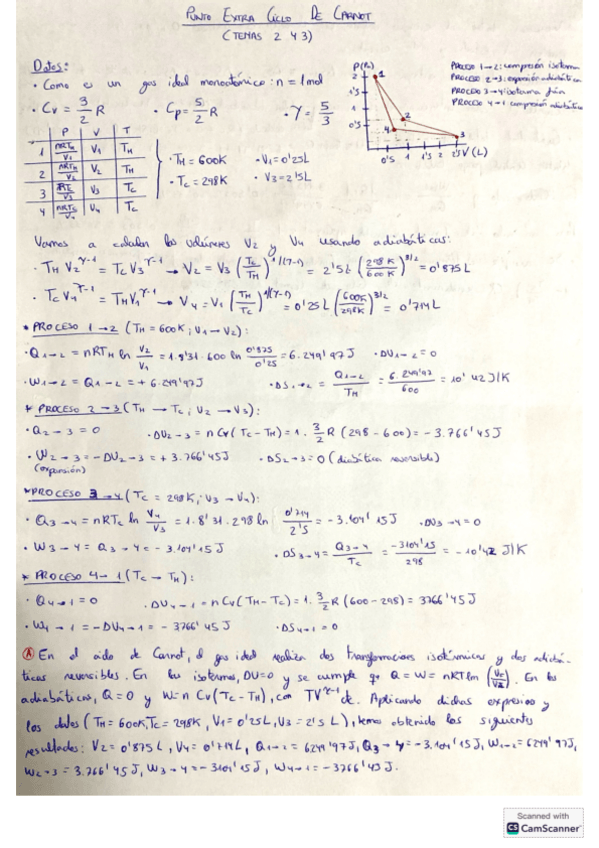 PUNTO EXTRA CICLO DE CARNOT
(TEMAS 2 Y 3)
Datos:
• Como es un gas ideal monoatómico: n = 1 mol
• Cv = 3/2 R • Cp = 5/2 R • γ = 5/3
P V T
1 nRTH/V1 V1 TH
2 nRTH/V2 V2 TH
3 nRTC/V3 V3 TC
4 nRTC/V4 V4 TC
• TH = 600K • V1 = 0'25L
• TC = 298K • V3 = 2'5L
P(Pa)
2
1'5
1
0'5
1
2
3
4
0'5 1 1'5 2 2'5 V(L)
PROCESO 1→2: compresión isoterma
PROCESO 2→3: expansión adiabática
PROCESO 3→4 isoterma fría
PROCESO 4→1 compresión adiabática
Vamos a calcular los volúmenes V2 y V4 usando adiabáticas:
• TH V2^γ-1 = TC V3^γ-1 → V2 = V3 (TC/TH)^1/(γ-1) = 2'5L (298K/600K)^3/2 = 0'875L
• TC V4^γ-1 = TH V1^γ-1 → V4 = V1 (TH/TC)^1/(γ-1) = 0'25L (600K/298K)^3/2 = 0'714L
* PROCESO 1→2 (TH = 600K; V1→V2):
• Q1→2 = nRTH ln V2/V1 = 1·8'31·600 ln 0'875/0'25 = 6.249'97J • DU1→2 = 0
• W1→2 = Q1→2 = + 6.249'97J • DS1→2 = Q1→2/TH = 6.249'97/600 = 10'42 J/K
* PROCESO 2→3 (TH → TC; V2 → V3):
• Q2→3 = 0 • DU2→3 = n Cv (TC - TH) = 1· 3/2 R (298 - 600) = - 3.766'45J
• W2→3 = - DU2→3 = + 3.766'45J • DS2→3 = 0 (diabática reversible)
(expansión)
* PROCESO 3→4 (TC = 298K; V3→V4):
• Q3→4 = nRTC ln V4/V3 = 1·8'31·298 ln 0'714/2'5 = - 3.104'15J • DU3→4 = 0
• W3→4 = Q3→4 = - 3.104'15J • DS3→4 = Q3→4/TC = -3104'15/298 = - 10'42 J/K
* PROCESO 4→1 (TC → TH):
• Q4→1 = 0 • DU4→1 = n Cv (TH - TC) = 1· 3/2 R (600 - 298) = 3766'45J
• W4→1 = - DU4→1 = - 3766'45J • DS4→1 = 0
Ⓐ En el ciclo de Carnot, el gas ideal realiza dos transformaciones isotérmicas y dos adiabá-
ticas reversibles. En las isotermas, DU=0 y se cumple q Q = W = nRT ln (VF/VI). En las
adiabáticas, Q = 0 y W = n Cv (TC - TH), con TV^γ-1 cte. Aplicando dichas expresiones y
los datos (TH = 600K, TC = 298K, V1 = 0'25L, V3 = 2'5L), hemos obtenido los siguientes
resultados: V2 = 0'875L, V4 = 0'714L, Q1→2 = 6249'97J, Q3→4 = -3.104'15J, W1→2 = 6249'97J,
W2→3 = 3.766'45J, W3→4 = -3104'15J, W4→1 = -3766'45J.
Scanned with
CS CamScanner